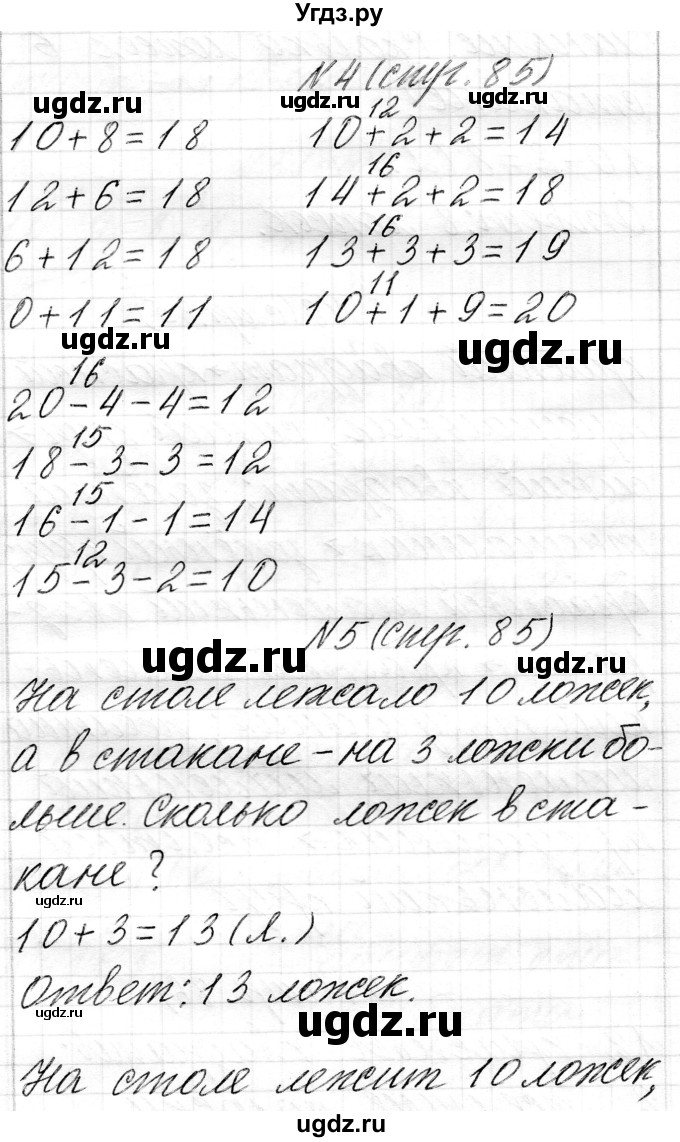 Угдз.ру
№4 (стр. 85)
10+8=18
12+6=18
6+12=18
0+11=11
12
10+2+2=14
16
14+2+2=18
16
13+3+3=19
11
10+1+9=20
16
20-4-4=12
15
18-3-3=12
15
16-1-1=14
12
15-3-2=10
№5 (стр. 85)
На столе лежало 10 ложек,
а в стакане - на 3 ложки бо-
льше. Сколько ложек в ста-
кане?
10+3=13 (л.)
Ответ: 13 ложек.
На столе лежит 10 ложек,
ugdz.ru
ugdz.ru
ugdz.ru
ugdz.ru
ugdz.ru
ugdz.ru
ugdz.ru
ugdz.ru
ugdz.ru
ugdz.ru
ugdz.ru
ugdz.ru
ugdz.ru